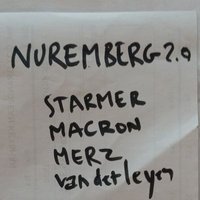 NUREMBERG 2.0
STARMER
MACRON
MERZ
van der leyen